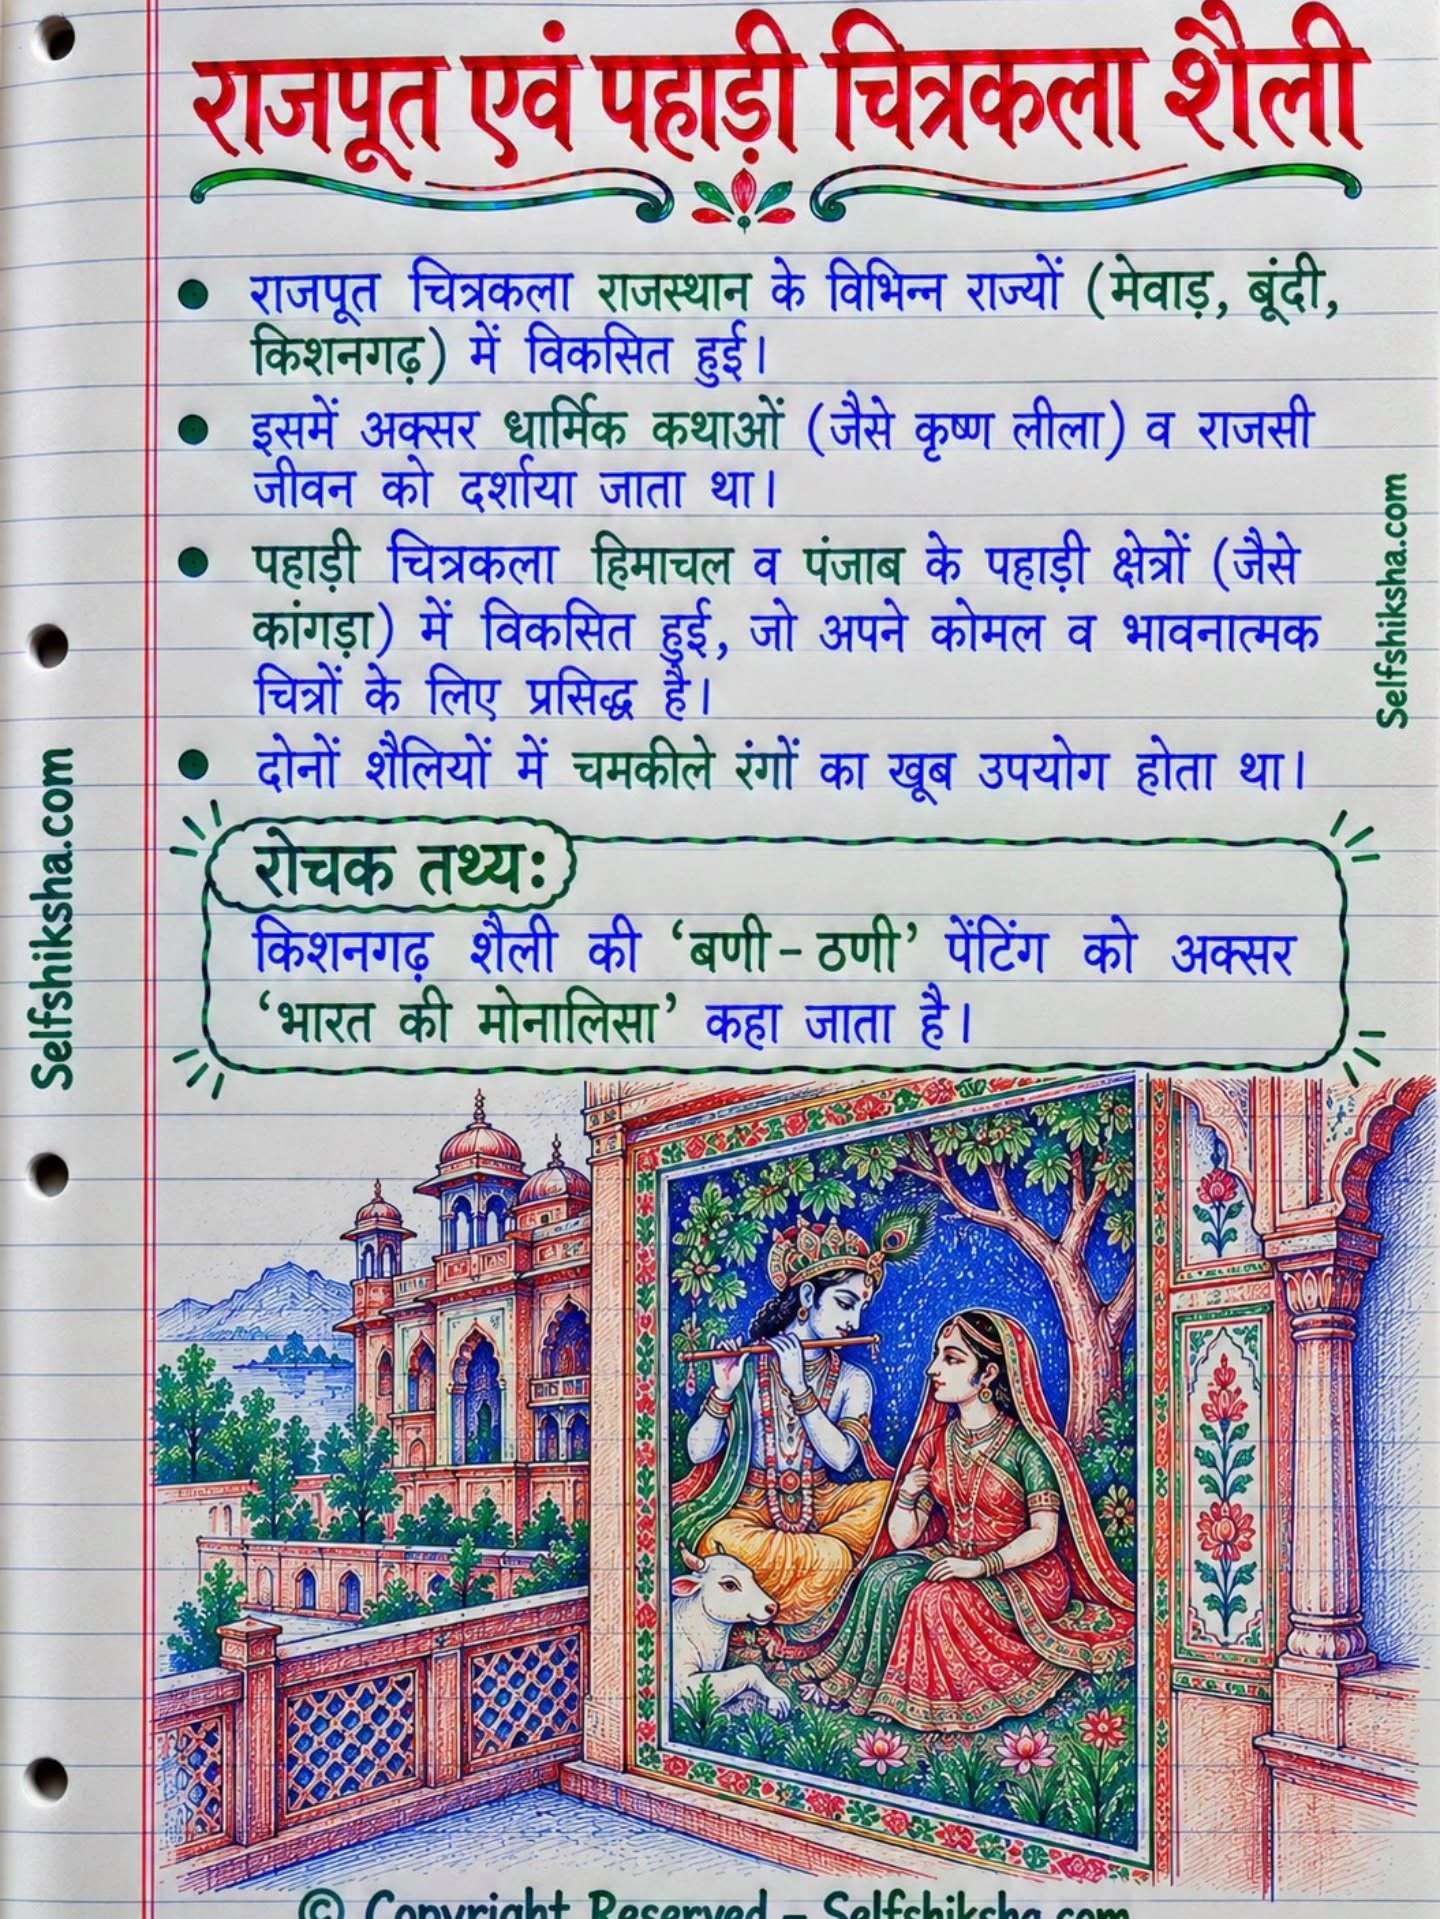 राजपूत एवं पहाड़ी चित्रकला शैली
राजपूत चित्रकला राजस्थान के विभिन्न राज्यों (मेवाड़, बूंदी,
किशनगढ़) में विकसित हुई।
इसमें अक्सर धार्मिक कथाओं (जैसे कृष्ण लीला) व राजसी
जीवन को दर्शाया जाता था।
पहाड़ी चित्रकला हिमाचल व पंजाब के पहाड़ी क्षेत्रों (जैसे
कांगड़ा) में विकसित हुई, जो अपने कोमल व भावनात्मक
चित्रों के लिए प्रसिद्ध है।
दोनों शैलियों में चमकीले रंगों का खूब उपयोग होता था।
रोचक तथ्य:
किशनगढ़ शैली की ‘बणी-ठणी’ पेंटिंग को अक्सर
‘भारत की मोनालिसा’ कहा जाता है।
Selfshiksha.com
Selfshiksha.com
© Copyright Reserved - Selfshiksha.com